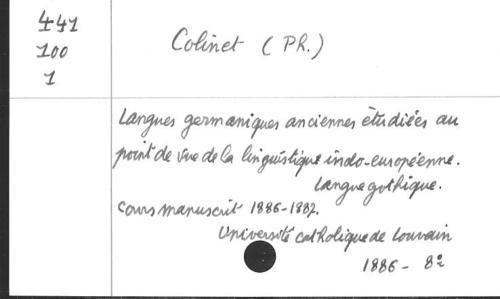 441
100
1
Colinet (Ph.)
Langues germaniques anciennes étudiées au
point de vue de la linguistique indo-européenne.
Langue gothique.
Cours manuscrit 1886-1887.
Université catholique de Louvain
1886 - 8º